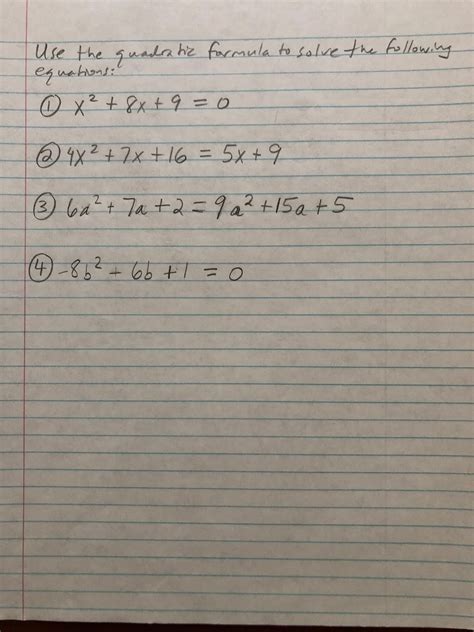 Use the quadratic formula to solve the following
equations:
① x² + 8x + 9 = 0
② 4x² + 7x + 16 = 5x + 9
③ 6a² + 7a + 2 = 9a² + 15a + 5
④ -8b² + 6b + 1 = 0